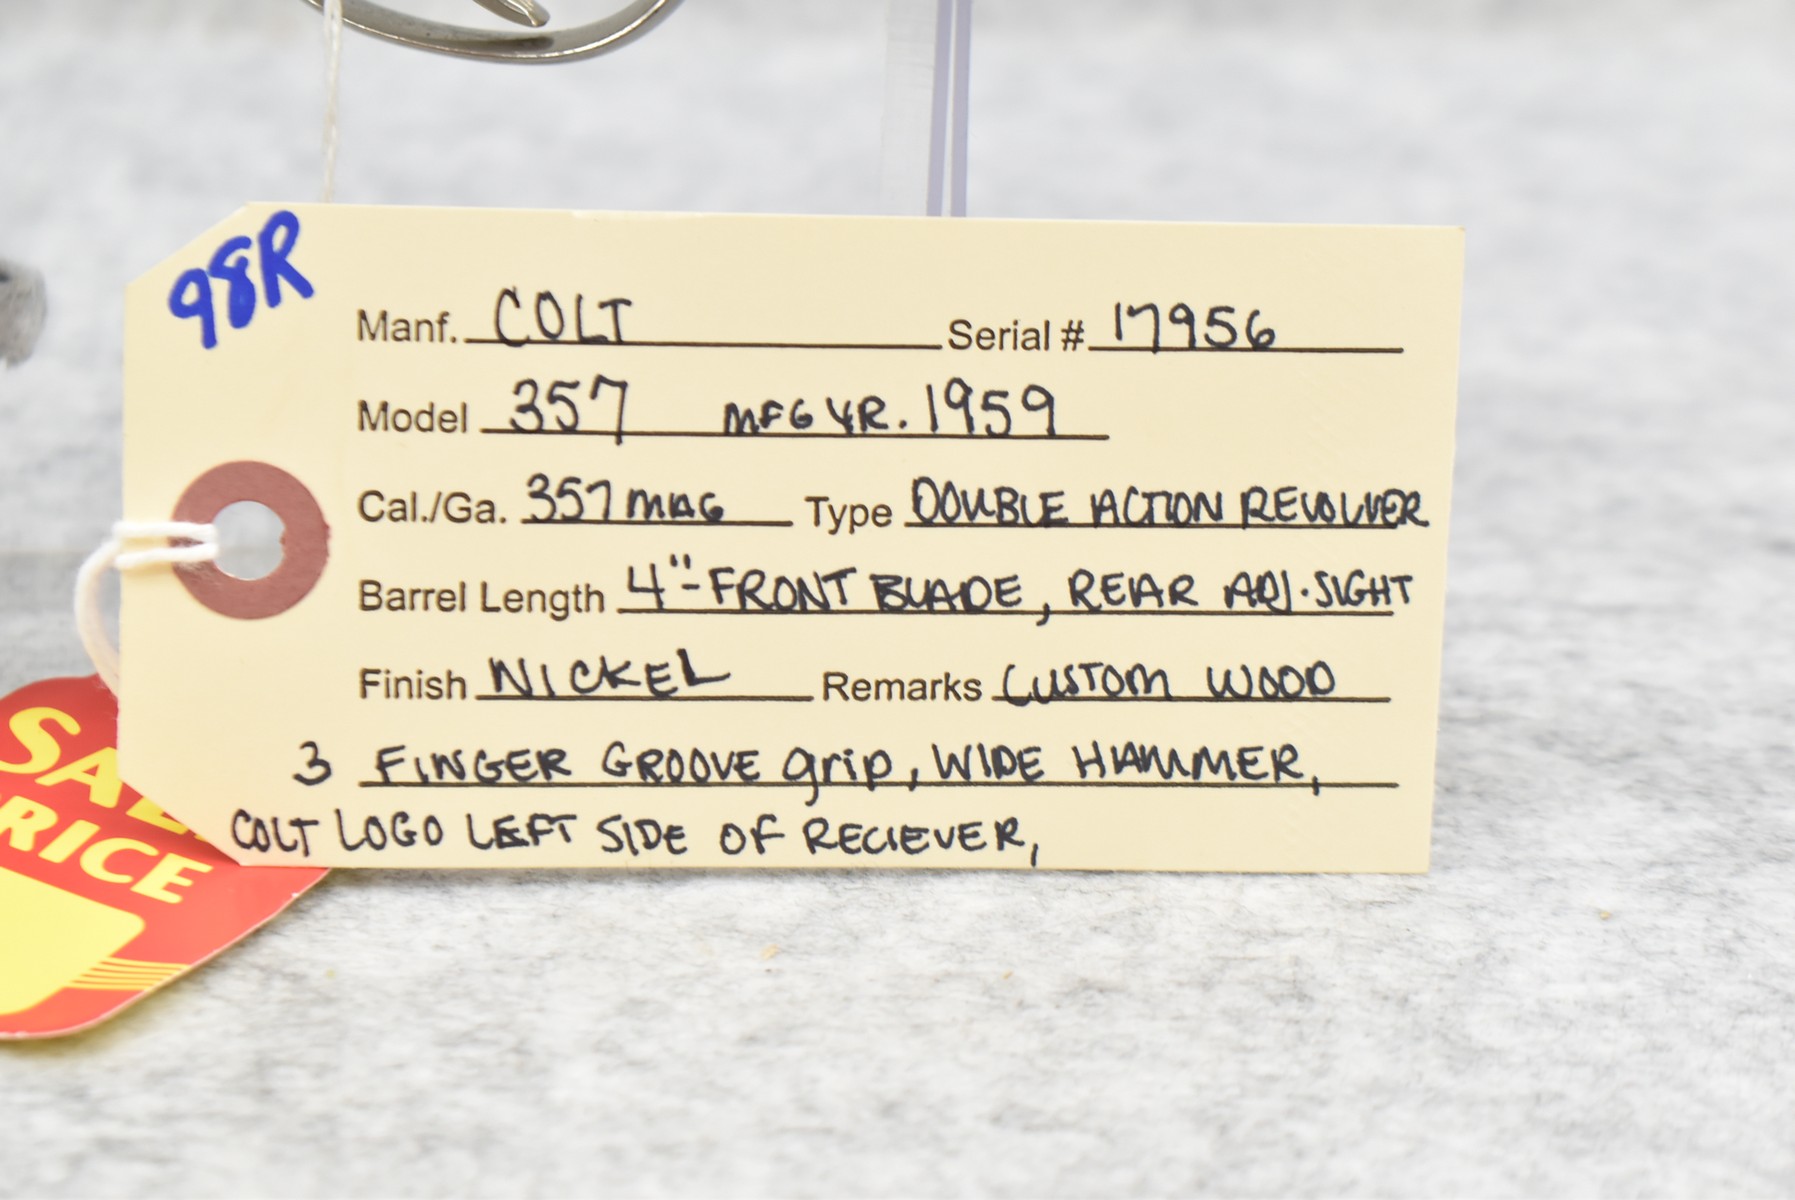 98R
Manf. COLT Serial # 17956
Model 357 MFG YR. 1959
Cal./Ga. 357 MAG Type DOUBLE ACTION REVOLVER
Barrel Length 4"-FRONT BLADE, REAR ADJ. SIGHT
Finish NICKEL Remarks CUSTOM WOOD
3 FINGER GROOVE grip, WIDE HAMMER,
COLT LOGO LEFT SIDE OF RECIEVER,